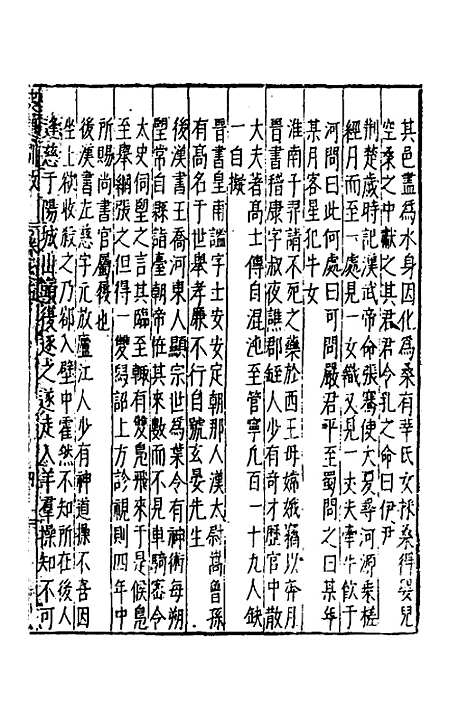 其邑盡為水身因化為桑有莘氏女採桑得嬰兒
空桑之中獻之其君君令乳之命曰伊尹
荆楚歲時記漢武帝命張騫使大夏尋河源乘槎
經月而至一處見一女織又見一丈夫牽牛飲于
河問曰此何處曰可問嚴君平至蜀問之曰某年
某月客星犯牛女
淮南子羿請不死之藥於西王母嫦娥竊以奔月
晋書嵇康字叔夜譙郡銍人少有奇才歷官中散
大夫著髙士傳自混沌至管寧凢百一十九人缺
一自擬
晋書皇甫謐字士安安定朝那人漢太尉嵩曾孫
有髙名于世舉孝廉不行自號玄晏先生
後漢書王喬河東人顯宗世為葉令有神術每朔
朢常自縣詣臺朝帝恠其來數而不見車騎密令
太史伺朢之言其臨至輒有雙鳬飛來于是候鳬
至舉網張之但得一雙舄詔上方診視則四年中
所賜尚書官屬後也
後漢書左慈字元放廬江人少有神道操不吝因
坐上欲收殺之乃郤入壁中霍然不知所在後人
逢慈于陽城山頭復逐之遂走入羊羣操知不可